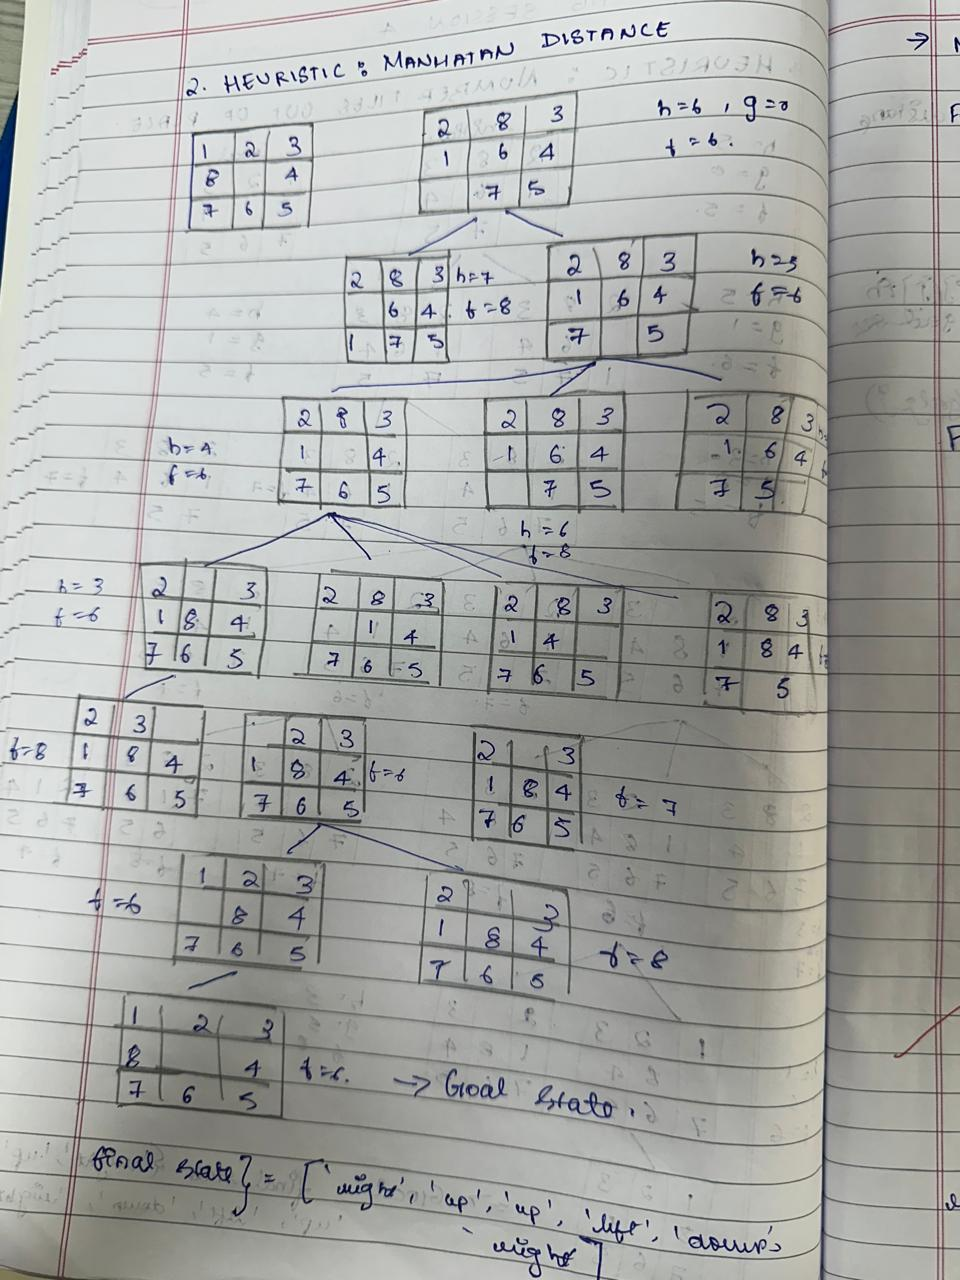 2. HEURISTIC: MANHATAN DISTANCE
1 2 3
8 4
7 6 5
2 8 3
1 6 4
7 5
h=6, g=0
f=6.
2 8 3
6 4
1 7 5
h=7
f=8
2 8 3
1 6 4
7 5
h=5
f=6
h=4
f=6
2 8 3
1 4
7 6 5
2 8 3
1 6 4
7 5
h=6
f=8
2 8 3
1 6 4
7 5
h=3
f=6
2 3
1 8 4
7 6 5
2 8 3
1 4
7 6 5
2 8 3
1 4
7 6 5
2 8 3
1 8 4
7 5
f=8
2 3
1 8 4
7 6 5
2 3
1 8 4
7 6 5
f=6
2 3
1 8 4
7 6 5
f=7
f=6
1 2 3
8 4
7 6 5
2 3
1 8 4
7 6 5
f=8
1 2 3
8 4
7 6 5
f=6.
→ Goal State.
final state} = ['right', 'up', 'up', 'left', 'down',
'right']